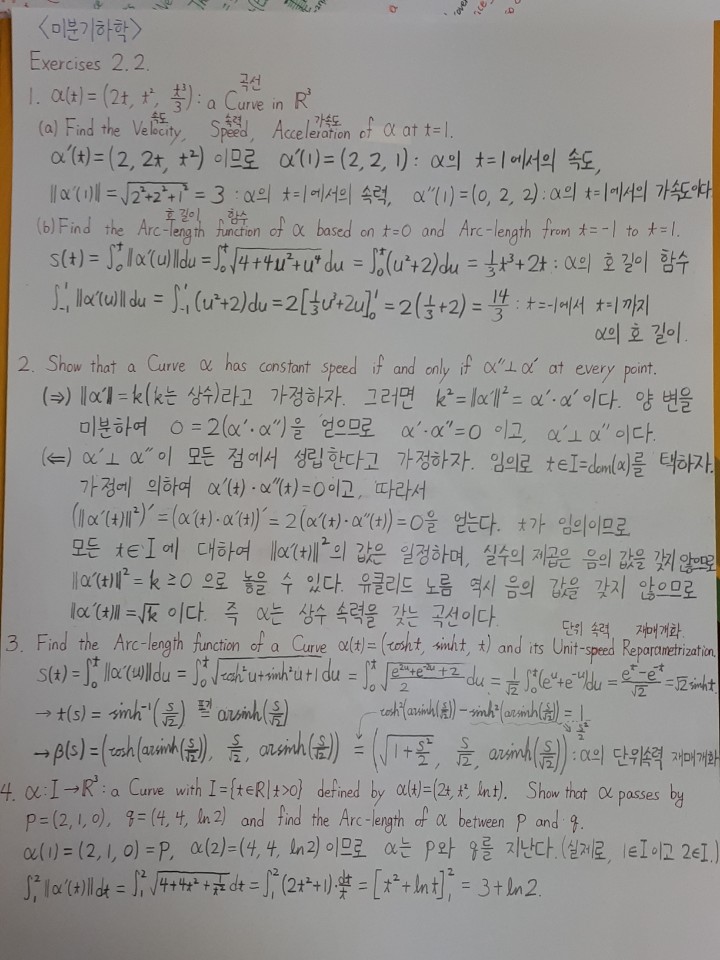 <미분기하학>
Exercises 2.2.
곡선
1. α(t) = (2t, t², t³/3) : a Curve in R³
속도 속력 가속도
(a) Find the Velocity, Speed, Acceleration of α at t=1.
α′(t) = (2, 2t, t²) 이므로 α′(1) = (2, 2, 1) : α의 t=1에서의 속도,
‖α′(1)‖ = √(2²+2²+1²) = 3 : α의 t=1에서의 속력, α″(1) = (0, 2, 2) : α의 t=1에서의 가속도이다.
호 길이 함수
(b) Find the Arc-length function of α based on t=0 and Arc-length from t=-1 to t=1.
s(t) = ∫₀ᵗ ‖α′(u)‖du = ∫₀ᵗ √(4+4u²+u⁴) du = ∫₀ᵗ (u²+2)du = 1/3 t³+2t : α의 호 길이 함수
∫₋₁¹ ‖α′(u)‖du = ∫₋₁¹ (u²+2)du = 2[1/3 u³+2u]₀¹ = 2(1/3+2) = 14/3 : t=-1에서 t=1까지
α의 호 길이.
2. Show that a Curve α has constant speed if and only if α″⊥α′ at every point.
(⇒) ‖α′‖ = k (k는 상수)라고 가정하자. 그러면 k² = ‖α′‖² = α′·α′이다. 양 변을
미분하여 0 = 2(α′·α″)을 얻으므로 α′·α″=0 이고, α′⊥α″이다.
(⇐) α′⊥α″이 모든 점에서 성립한다고 가정하자. 임의로 t∈I=dom(α)를 택하자.
가정에 의하여 α′(t)·α″(t)=0이고, 따라서
(‖α′(t)‖²)′ = (α′(t)·α′(t))′ = 2(α′(t)·α″(t)) = 0을 얻는다. t가 임의이므로
모든 t∈I에 대하여 ‖α′(t)‖²의 값은 일정하며, 실수의 제곱은 음의 값을 갖지 않으므로
‖α′(t)‖² = k ≥ 0 으로 놓을 수 있다. 유클리드 노름 역시 음의 값을 갖지 않으므로
‖α′(t)‖ = √k 이다. 즉 α는 상수 속력을 갖는 곡선이다.
단위 속력 재매개화
3. Find the Arc-length function of a Curve α(t) = (cosht, sinht, t) and its Unit-speed Reparametrization.
s(t) = ∫₀ᵗ ‖α′(u)‖du = ∫₀ᵗ √(cosh²u+sinh²u+1) du = ∫₀ᵗ √(e²ᵘ+e⁻²ᵘ+2)/2 du = 1/√2 ∫₀ᵗ (eᵘ+e⁻ᵘ)du = (eᵗ-e⁻ᵗ)/√2 = √2 sinht.
→ t(s) = sinh⁻¹(s/√2) 표기= arsinh(s/√2)
cosh²(arsinh(s/√2)) - sinh²(arsinh(s/√2)) = 1
s²/2
→ β(s) = (cosh(arsinh(s/√2)), s/√2, arsinh(s/√2)) = (√(1+s²/2), s/√2, arsinh(s/√2)) : α의 단위속력 재매개화
4. α : I → R³ : a Curve with I = {t∈R | t>0} defined by α(t) = (2t, t², ln t). Show that α passes by
p = (2, 1, 0), q = (4, 4, ln2) and find the Arc-length of α between p and q.
α(1) = (2, 1, 0) = p, α(2) = (4, 4, ln2)이므로 α는 p와 q를 지난다. (실제로, 1∈I이고 2∈I.)
∫₁² ‖α′(t)‖dt = ∫₁² √(4+4t²+1/t²) dt = ∫₁² (2t²+1)·dt/t = [t²+ln t]₁² = 3+ln2.